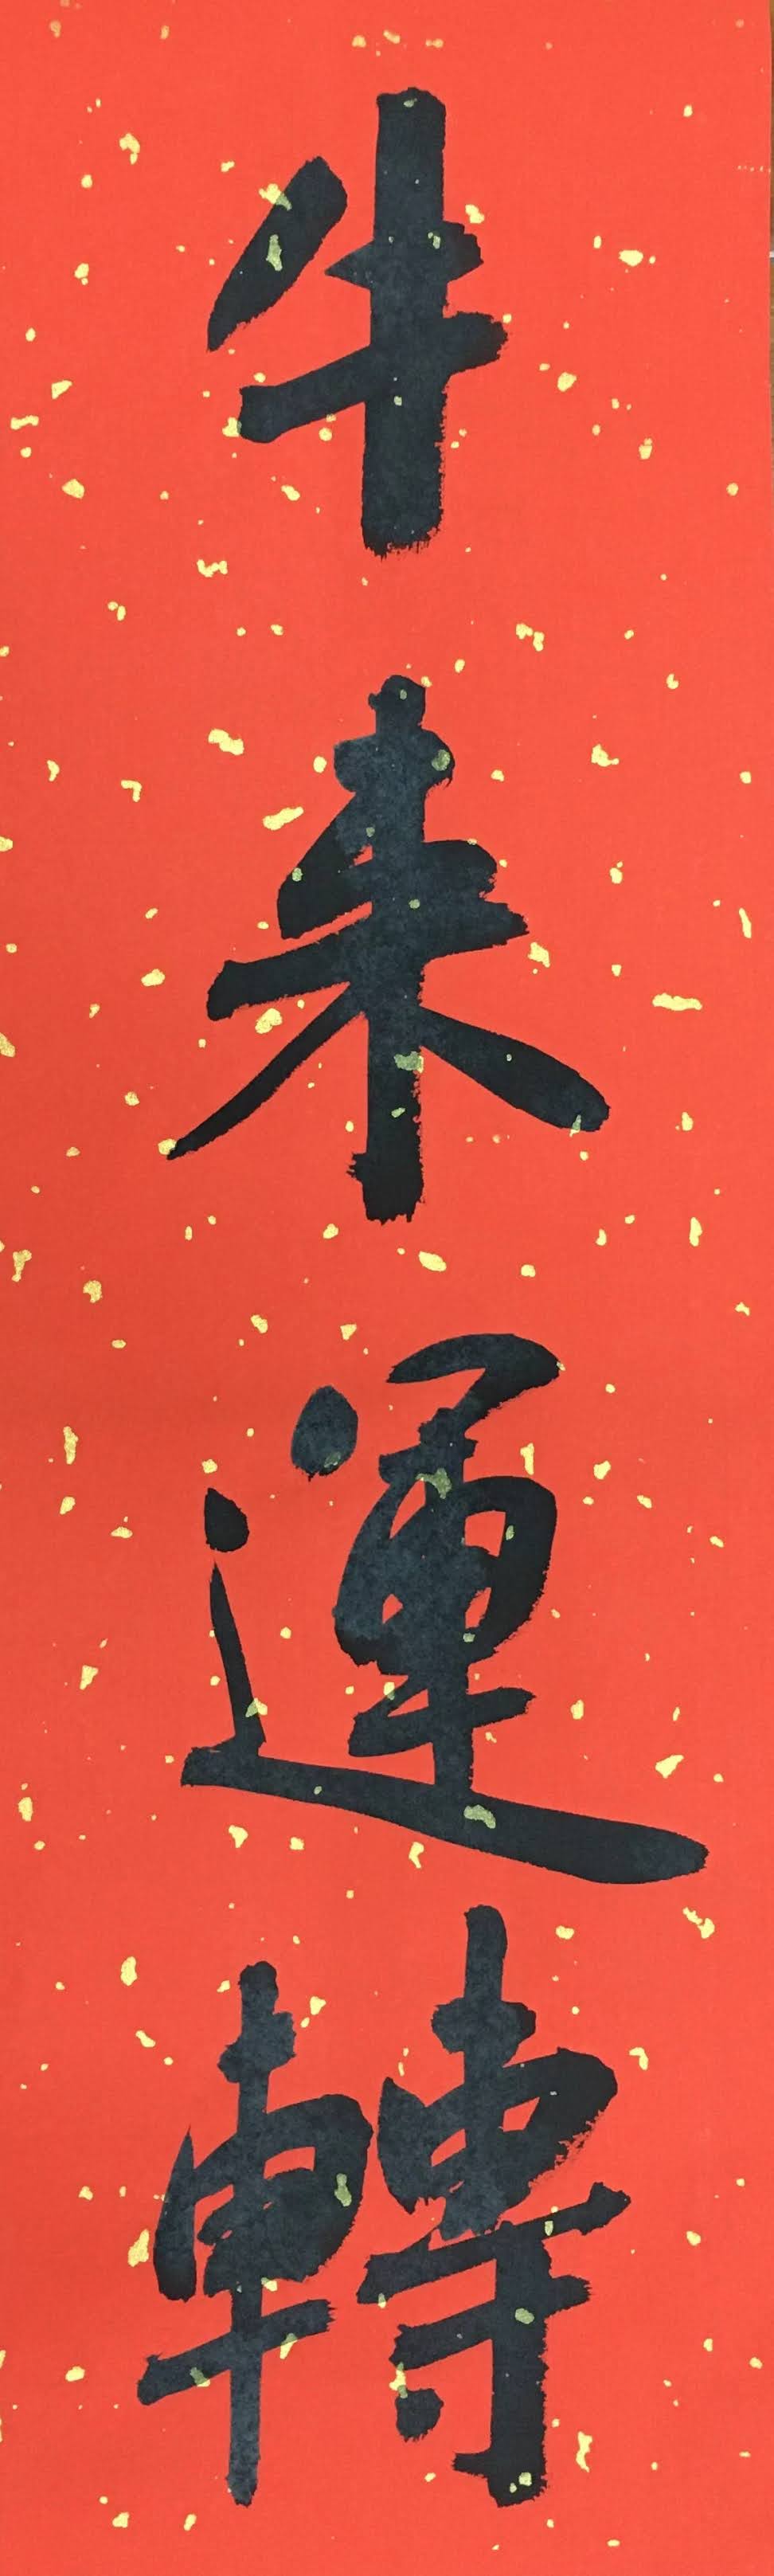 牛来運轉